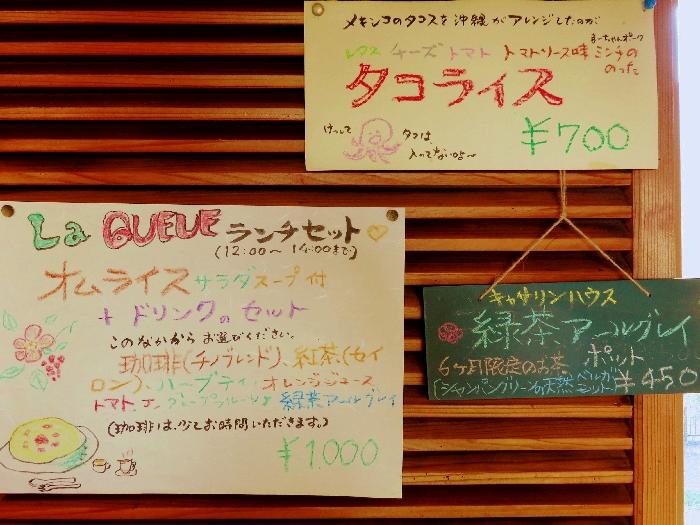 メキシコのタコスを沖縄がアレンジしたのが
まーちゃんポーク
レタス チーズ トマト トマトソース味 ミンチの
のった
タコライス
けっして タコは
入ってないさ〜
¥700
La QUEUE ランチセット
(12:00〜14:00まで)
オムライス サラダスープ付
+ ドリンクのセット
このなかから お選びください。
珈琲(チノブレンド)、紅茶(セイ
ロン)、ハーブティ、オレンジジュース
トマト、グレープフルーツ 緑茶アールグレイ
(珈琲は、少しお時間いただきます。)
¥1,000
キャサリンハウス
緑茶アールグレイ
6ヶ月限定のお茶 ポット
シャンパングリーンの天然ベルガ
ミット
¥450